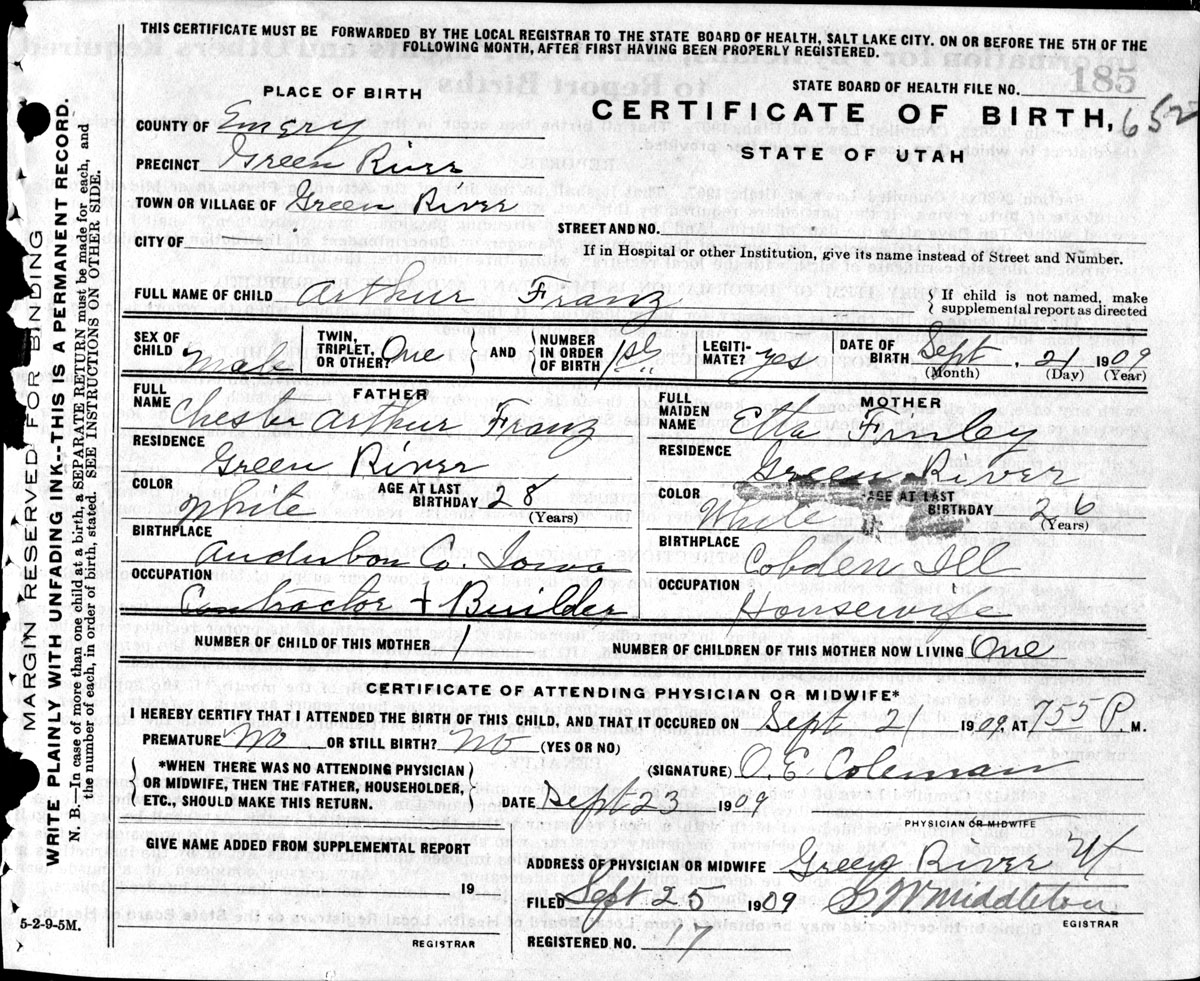 THIS CERTIFICATE MUST BE FORWARDED BY THE LOCAL REGISTRAR TO THE STATE BOARD OF HEALTH, SALT LAKE CITY. ON OR BEFORE THE 5TH OF THE
FOLLOWING MONTH, AFTER FIRST HAVING BEEN PROPERLY REGISTERED.
185
MARGIN RESERVED FOR BINDING
WRITE PLAINLY WITH UNFADING INK--THIS IS A PERMANENT RECORD.
N. B.—In case of more than one child at a birth, a SEPARATE RETURN must be made for each, and
the number of each, in order of birth, stated. SEE INSTRUCTIONS ON OTHER SIDE.
STATE BOARD OF HEALTH FILE NO.
PLACE OF BIRTH
CERTIFICATE OF BIRTH, 652
STATE OF UTAH
COUNTY OF Emery
PRECINCT Green River
TOWN OR VILLAGE OF Green River
STREET AND NO.
CITY OF
If in Hospital or other Institution, give its name instead of Street and Number.
FULL NAME OF CHILD Arthur Franz { If child is not named, make
supplemental report as directed
SEX OF CHILD Male TWIN, TRIPLET, OR OTHER? One } AND { NUMBER IN ORDER OF BIRTH 1st LEGITI- MATE? yes DATE OF BIRTH Sept, 21 1909
(Month) (Day) (Year)
FATHER
FULL NAME Chester Arthur Franz
RESIDENCE
Green River
COLOR White AGE AT LAST BIRTHDAY 28
(Years)
BIRTHPLACE
Anderbon Co. Iowa
OCCUPATION
Contractor + Builder
MOTHER
FULL MAIDEN NAME Etta Finley
RESIDENCE
Green River
COLOR White AGE AT LAST BIRTHDAY 26
(Years)
BIRTHPLACE
Cobden Ill
OCCUPATION
Housewife
NUMBER OF CHILD OF THIS MOTHER 1 NUMBER OF CHILDREN OF THIS MOTHER NOW LIVING One
CERTIFICATE OF ATTENDING PHYSICIAN OR MIDWIFE*
I HEREBY CERTIFY THAT I ATTENDED THE BIRTH OF THIS CHILD, AND THAT IT OCCURED ON Sept 21 1909, AT 755 P. M.
PREMATURE No OR STILL BIRTH? No (YES OR NO)
{ *WHEN THERE WAS NO ATTENDING PHYSICIAN
OR MIDWIFE, THEN THE FATHER, HOUSEHOLDER,
ETC., SHOULD MAKE THIS RETURN. }
(SIGNATURE) O. E. Coleman
DATE Sept 25 1909
PHYSICIAN OR MIDWIFE
GIVE NAME ADDED FROM SUPPLEMENTAL REPORT
19
REGISTRAR
ADDRESS OF PHYSICIAN OR MIDWIFE Green River Ut
FILED Sept 25 1909 S W Middleton
EGISTRAR
REGISTERED NO. 17
5-2-9-5M.